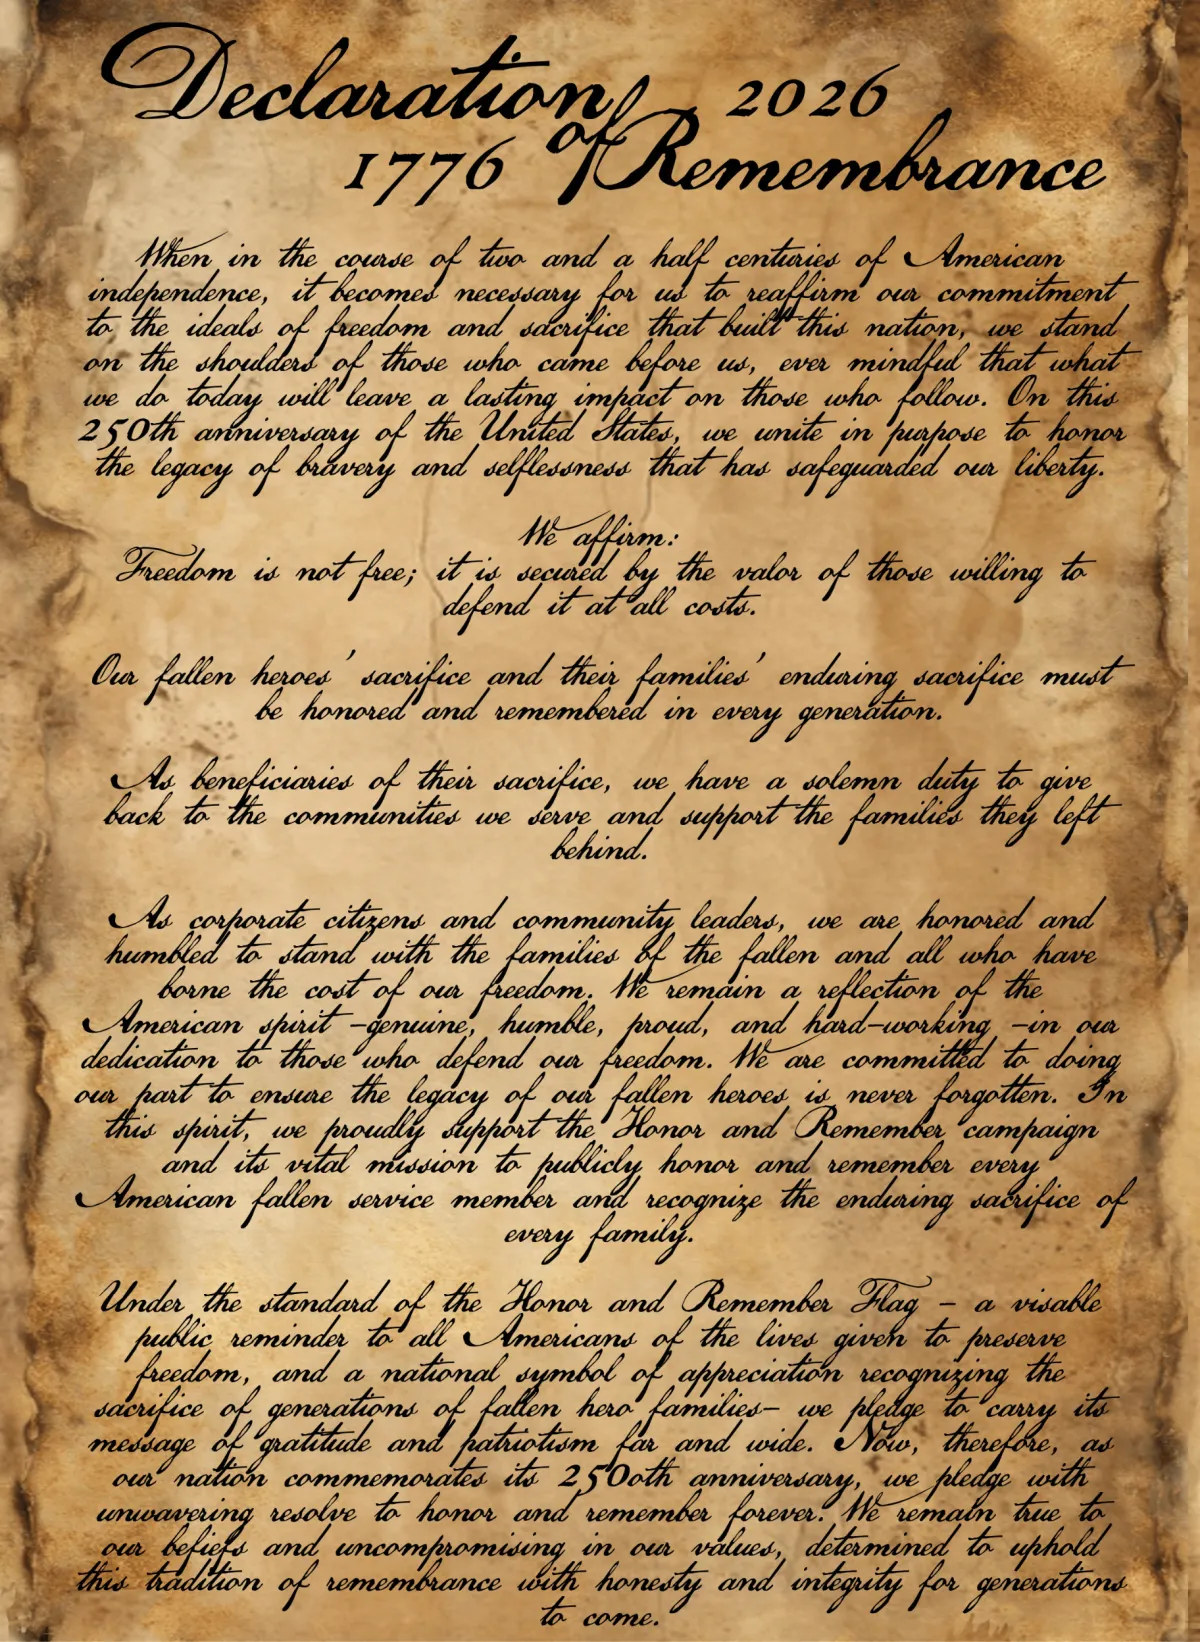 Declaration 2026
1776 of Remembrance
When in the course of two and a half centuries of American
independence, it becomes necessary for us to reaffirm our commitment
to the ideals of freedom and sacrifice that built this nation, we stand
on the shoulders of those who came before us, ever mindful that what
we do today will leave a lasting impact on those who follow. On this
250th anniversary of the United States, we unite in purpose to honor
the legacy of bravery and selflessness that has safeguarded our liberty.
We affirm:
Freedom is not free; it is secured by the valor of those willing to
defend it at all costs.
Our fallen heroes' sacrifice and their families' enduring sacrifice must
be honored and remembered in every generation.
As beneficiaries of their sacrifice, we have a solemn duty to give
back to the communities we serve and support the families they left
behind.
As corporate citizens and community leaders, we are honored and
humbled to stand with the families of the fallen and all who have
borne the cost of our freedom. We remain a reflection of the
American spirit -genuine, humble, proud, and hard-working -in our
dedication to those who defend our freedom. We are committed to doing
our part to ensure the legacy of our fallen heroes is never forgotten. In
this spirit, we proudly support the Honor and Remember campaign
and its vital mission to publicly honor and remember every
American fallen service member and recognize the enduring sacrifice of
every family.
Under the standard of the Honor and Remember Flag - a visable
public reminder to all Americans of the lives given to preserve
freedom, and a national symbol of appreciation recognizing the
sacrifice of generations of fallen hero families- we pledge to carry its
message of gratitude and patriotism far and wide. Now, therefore, as
our nation commemorates its 250oth anniversary, we pledge with
unwavering resolve to honor and remember forever. We remain true to
our beliefs and uncompromising in our values, determined to uphold
this tradition of remembrance with honesty and integrity for generations
to come.